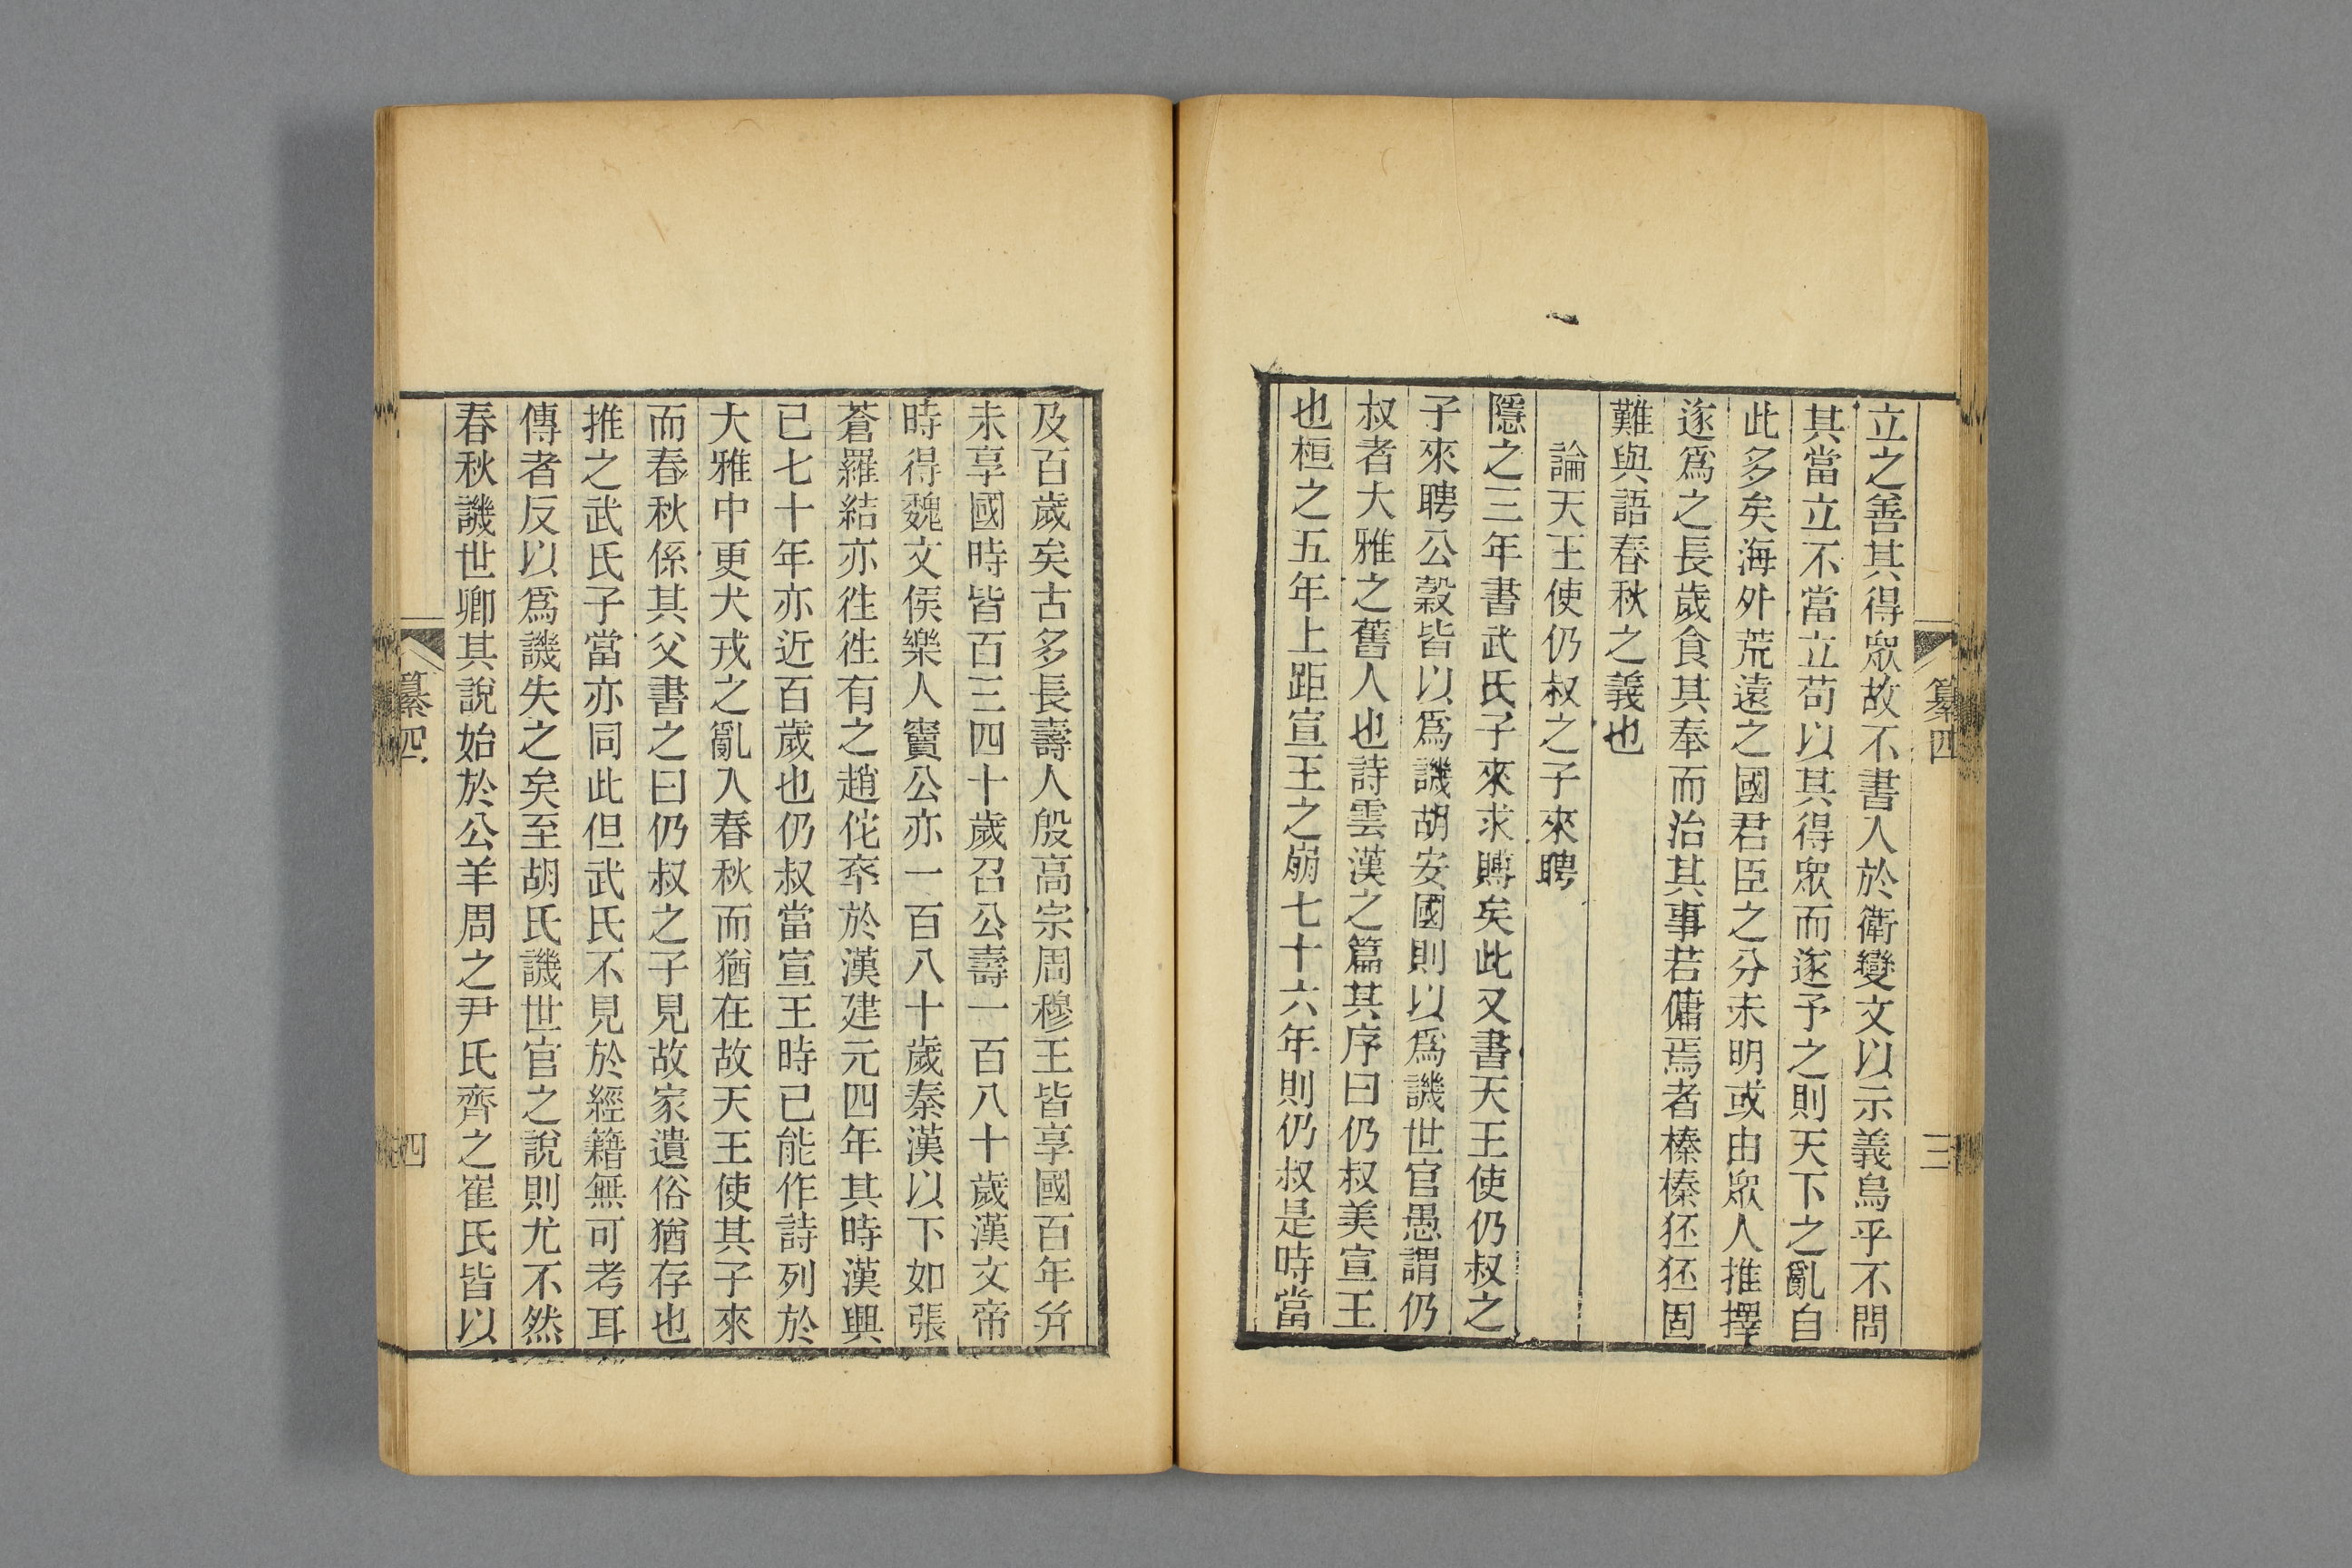 纂四
三
立之善其得眾故不書入於衛變文以示義烏乎不問
其當立不當立苟以其得眾而遂予之則天下之亂自
此多矣海外荒遠之國君臣之分未明或由眾人推擇
遂爲之長歲食其奉而治其事若傭焉者榛榛狉狉固
難與語春秋之義也
論天王使仍叔之子來聘
隱之三年書武氏子來求賻矣此又書天王使仍叔之
子來聘公穀皆以爲譏胡安國則以爲譏世官愚謂仍
叔者大雅之舊人也詩雲漢之篇其序曰仍叔美宣王
也桓之五年上距宣王之崩七十六年則仍叔是時當
及百歲矣古多長壽人殷高宗周穆王皆享國百年并
未享國時皆百三四十歲召公壽一百八十歲漢文帝
時得魏文侯樂人竇公亦一百八十歲秦漢以下如張
蒼羅結亦徃徃有之趙佗卒於漢建元四年其時漢興
已七十年亦近百歲也仍叔當宣王時已能作詩列於
大雅中更犬戎之亂入春秋而猶在故天王使其子來
而春秋係其父書之曰仍叔之子見故家遺俗猶存也
推之武氏子當亦同此但武氏不見於經籍無可考耳
傳者反以爲譏失之矣至胡氏譏世官之說則尤不然
春秋譏世卿其說始於公羊周之尹氏齊之崔氏皆以
纂四
四